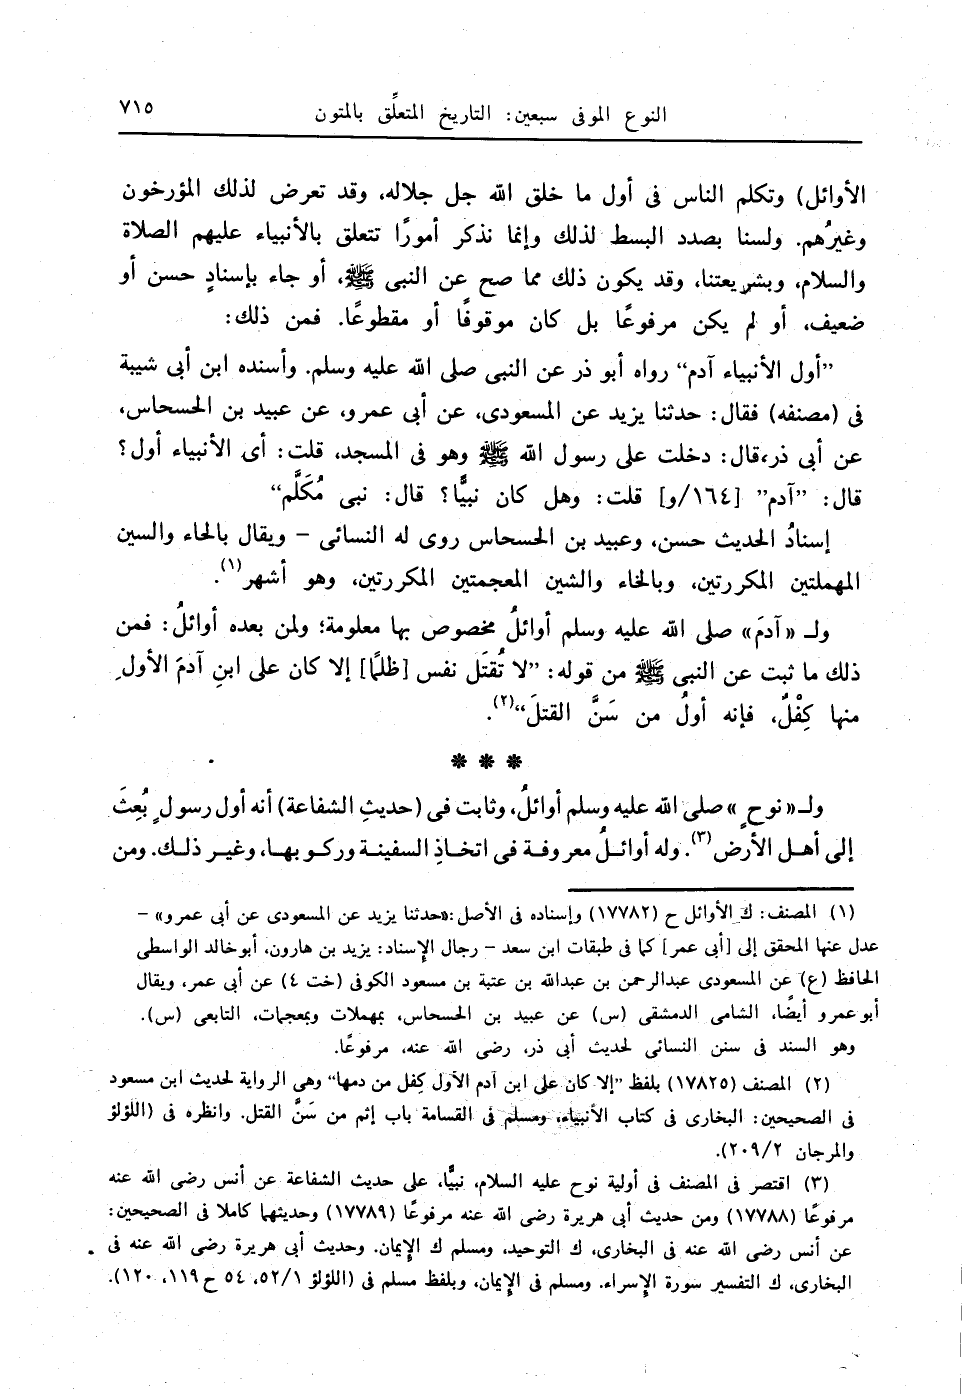 النوع الموفى سبعين: التاريخ المتعلِّق بالمتون ٧١٥
الأوائل) وتكلم الناس فى أول ما خلق الله جل جلاله، وقد تعرض لذلك المؤرخون
وغيرُهم. ولسنا بصدد البسط لذلك وإنما نذكر أمورًا تتعلق بالأنبياء عليهم الصلاة
والسلام، وبشريعتنا، وقد يكون ذلك مما صح عن النبى ﷺ، أو جاء بإسنادٍ حسن أو
ضعيف، أو لم يكن مرفوعًا بل كان موقوفًا أو مقطوعًا. فمن ذلك:
”أول الأنبياء آدم“ رواه أبو ذر عن النبى صلى الله عليه وسلم. وأسنده ابن أبى شيبة
فى (مصنفه) فقال: حدثنا يزيد عن المسعودى، عن أبى عمرو، عن عبيد بن الحسحاس،
عن أبى ذر،قال: دخلت على رسول الله ﷺ وهو فى المسجد، قلت: أى الأنبياء أول؟
قال: ”آدم” [١٦٤/و] قلت: وهل كان نبيًّا؟ قال: نبى مُكَلَّم“
إسنادُ الحديث حسن، وعبيد بن الحسحاس روى له النسائى – ويقال بالحاء والسين
المهملتين المكررتين، وبالخاء والشين المعجمتين المكررتين، وهو أشهر(١).
ولـ «آدمَ» صلى الله عليه وسلم أوائلُ مخصوص بها معلومة؛ ولمن بعده أوائلُ: فمن
ذلك ما ثبت عن النبى ﷺ من قوله: ”لا تُقتَل نفس [ظلمًا] إلا كان على ابنِ آدمَ الأولِ
منها كِفْلٌ، فإنه أولُ من سَنَّ القتلَ“(٢).
* * *
ولـ«نوحٍ» صلى الله عليه وسلم أوائلُ، وثابت فى (حديثِ الشفاعة) أنه أول رسولٍ بُعِثَ
إلى أهل الأرض(٣). وله أوائلُ معروفة فى اتخاذِ السفينة وركوبها، وغير ذلك. ومن
(١) المصنف: ك الأوائل ح (١٧٧٨٢) وإسناده فى الأصل:«حدثنا يزيد عن المسعودى عن أبى عمرو» –
عدل عنها المحقق إلى [أبى عمر] كما فى طبقات ابن سعد – رجال الإسناد: يزيد بن هارون، أبوخالد الواسطى
الحافظ (ع) عن المسعودى عبدالرحمن بن عبدالله بن عتبة بن مسعود الكوفى (خت ٤) عن أبى عمر، ويقال
أبوعمرو أيضًا، الشامى الدمشقى (س) عن عبيد بن الحسحاس، بمهملات وبمعجمات، التابعى (س).
وهو السند فى سنن النسائى لحديث أبى ذر، رضى الله عنه، مرفوعًا.
(٢) المصنف (١٧٨٢٥) بلفظ ”إلا كان على ابن آدم الأول كِفل من دمها“ وهى الرواية لحديث ابن مسعود
فى الصحيحين: البخارى فى كتاب الأنبياء، ومسلم فى القسامة باب إثم من سَنَّ القتل. وانظره فى (اللؤلؤ
والمرجان ٢٠٩/٢).
(٣) اقتصر فى المصنف فى أولية نوح عليه السلام، نبيًّا، على حديث الشفاعة عن أنس رضى الله عنه
مرفوعًا (١٧٧٨٨) ومن حديث أبى هريرة رضى الله عنه مرفوعًا (١٧٧٨٩) وحديثهما كاملا فى الصحيحين:
عن أنس رضى الله عنه فى البخارى، ك التوحيد، ومسلم ك الإيمان. وحديث أبى هريرة رضى الله عنه فى
البخارى، ك التفسير سورة الإسراء. ومسلم فى الإيمان، وبلفظ مسلم فى (اللؤلؤ ٥٢/١، ٥٤ ح ١١٩، ١٢٠).